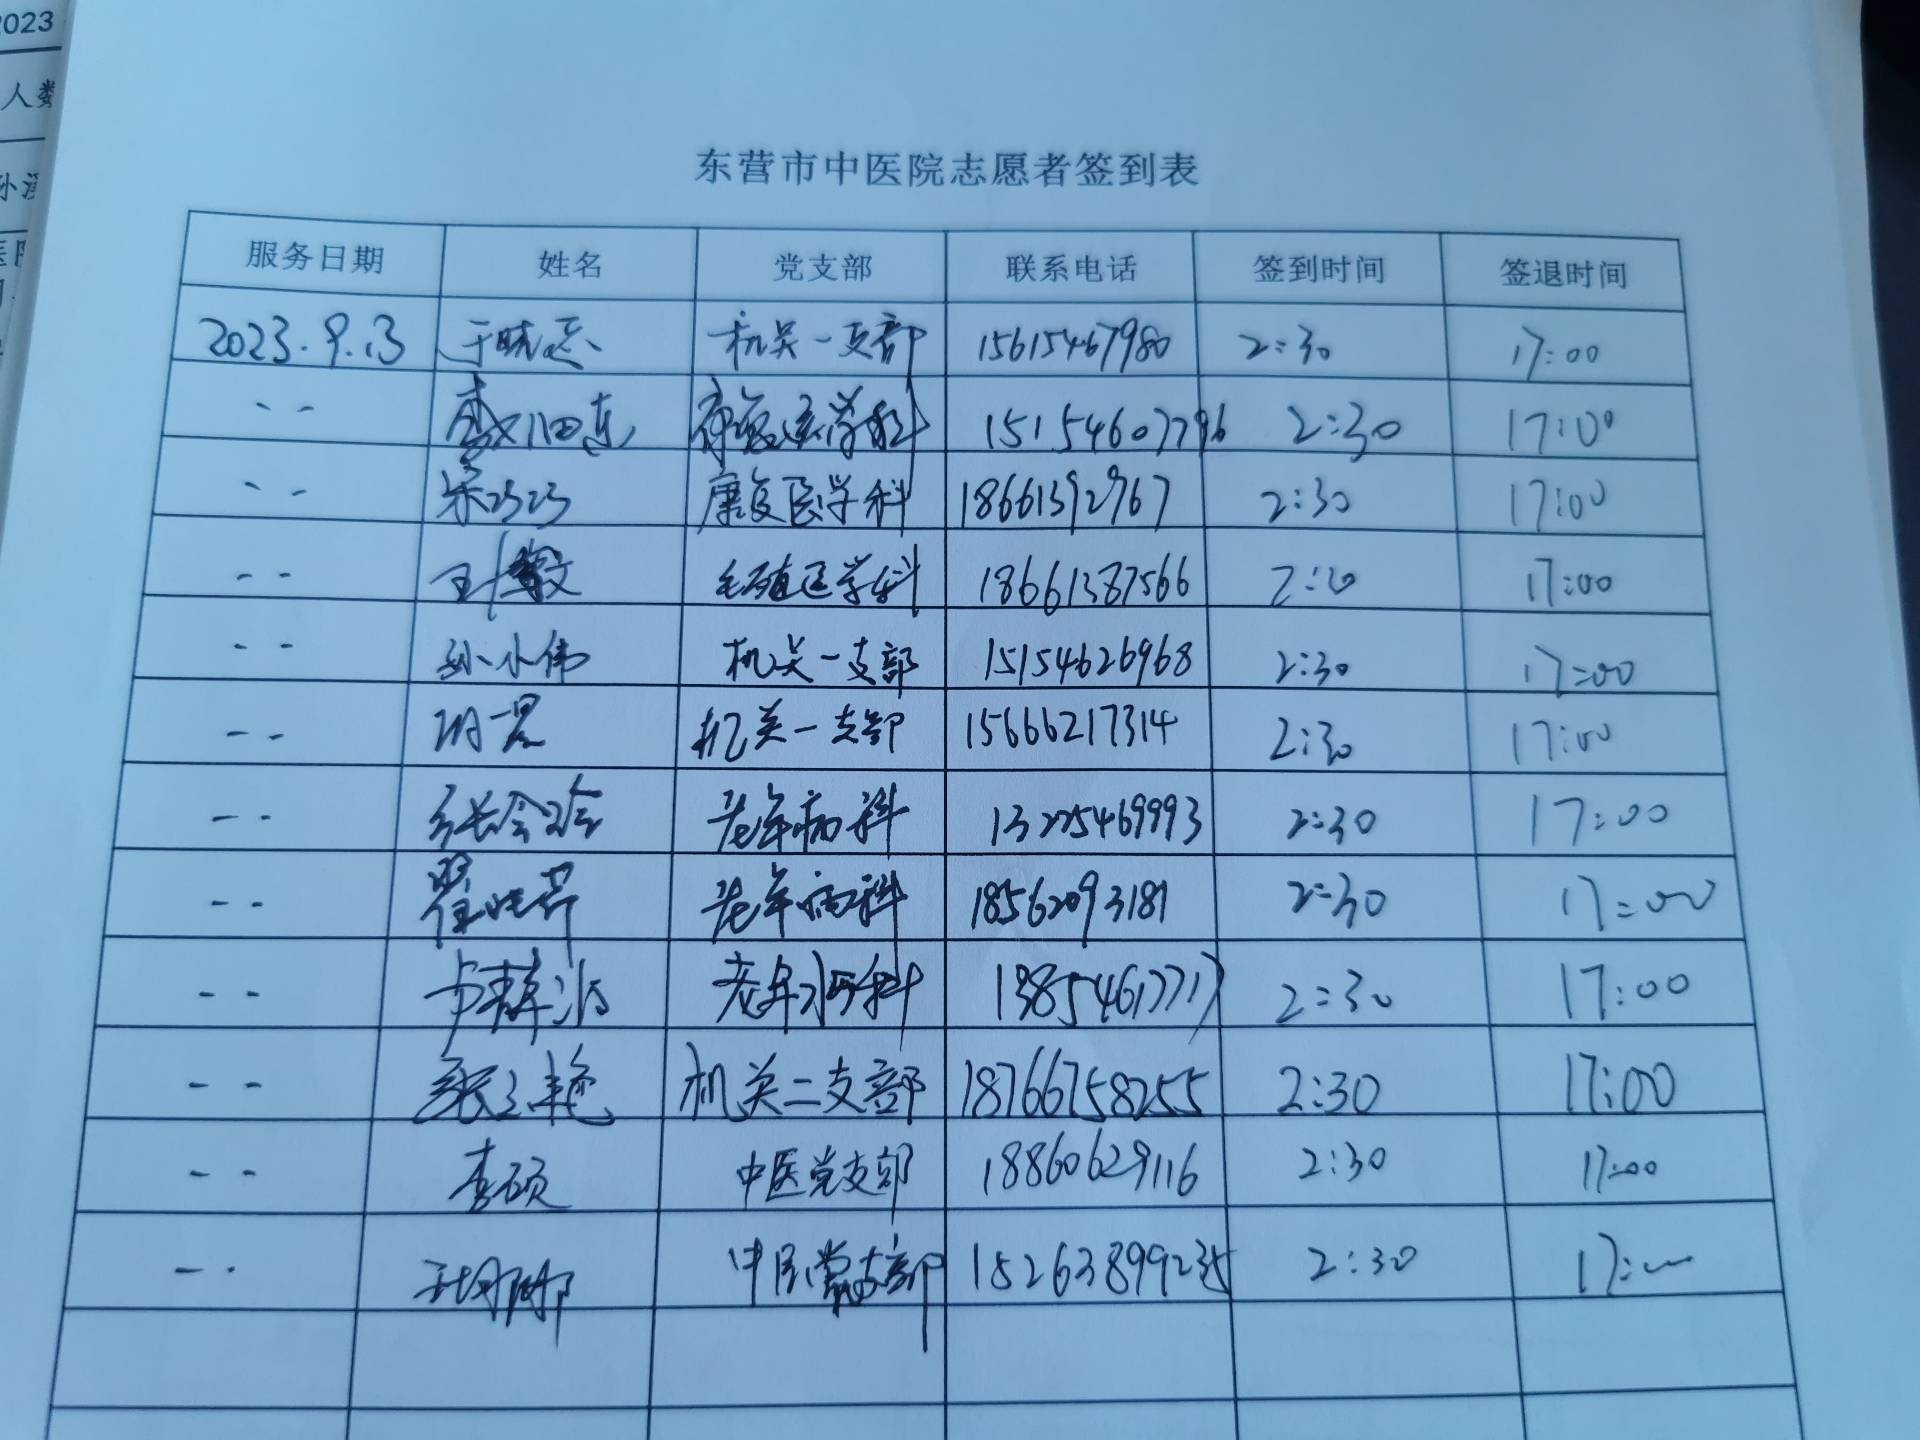 2023
人数
孙
医院
东营市中医院志愿者签到表
服务日期 姓名 党支部 联系电话 签到时间 签退时间
2023.9.13 于晓 机关一支部 15615467980 2:30 17:00
-- 东 康复医学科 15154607796 2:30 17:00
-- 宋巧巧 康复医学科 18661392967 2:30 17:00
-- 王 生殖医学科 18661387566 2:30 17:00
-- 孙小伟 机关一支部 15154626968 2:30 17:00
-- 机关一支部 15666217314 2:30 17:00
-- 张会玲 老年病科 13225469993 2:30 17:00
-- 翟晓芹 老年病科 18562093181 2:30 17:00
-- 卢 老年病科 2:30 17:00
-- 张 艳 机关二支部 18766758255 2:30 17:00
-- 李硕 中医党支部 18860629116 2:30 17:00
-- 中医党支部 2:30 17:00